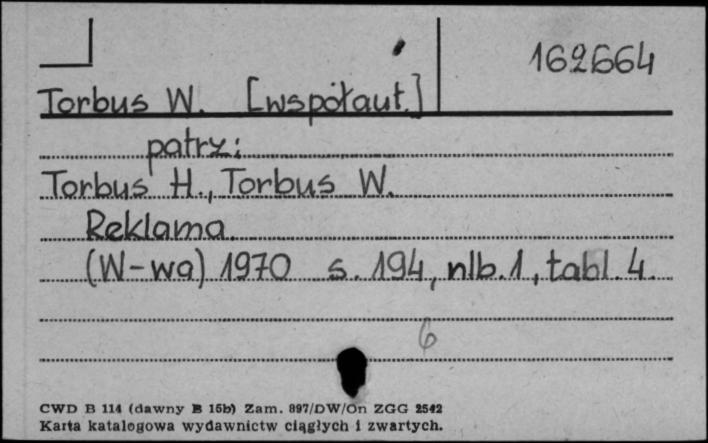 162664
Torbus W. [współaut.]
patrz:
Torbus H., Torbus W.
Reklama.
(W-wa) 1970 s. 194, nlb. 1, tabl. 4.
6
CWD B 114 (dawny B 15b) Zam. 897/DW/On ZGG 2542
Karta katalogowa wydawnictw ciągłych i zwartych.